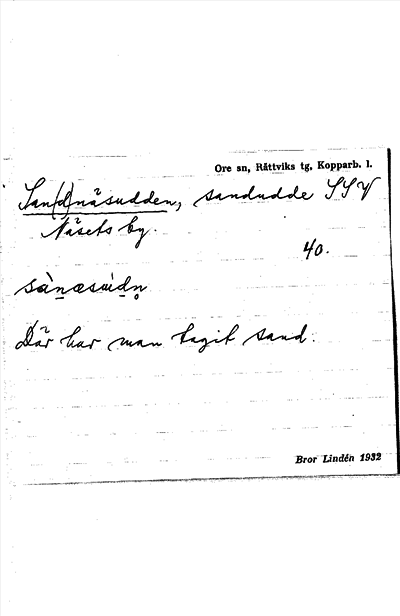 Ore sn, Rättviks tg, Kopparb. l.
San(d)näsudden, sandudde SSV
Näsets by.
40.
sànæsùdn̥
Där har man tagit sand.
Bror Lindén 1932